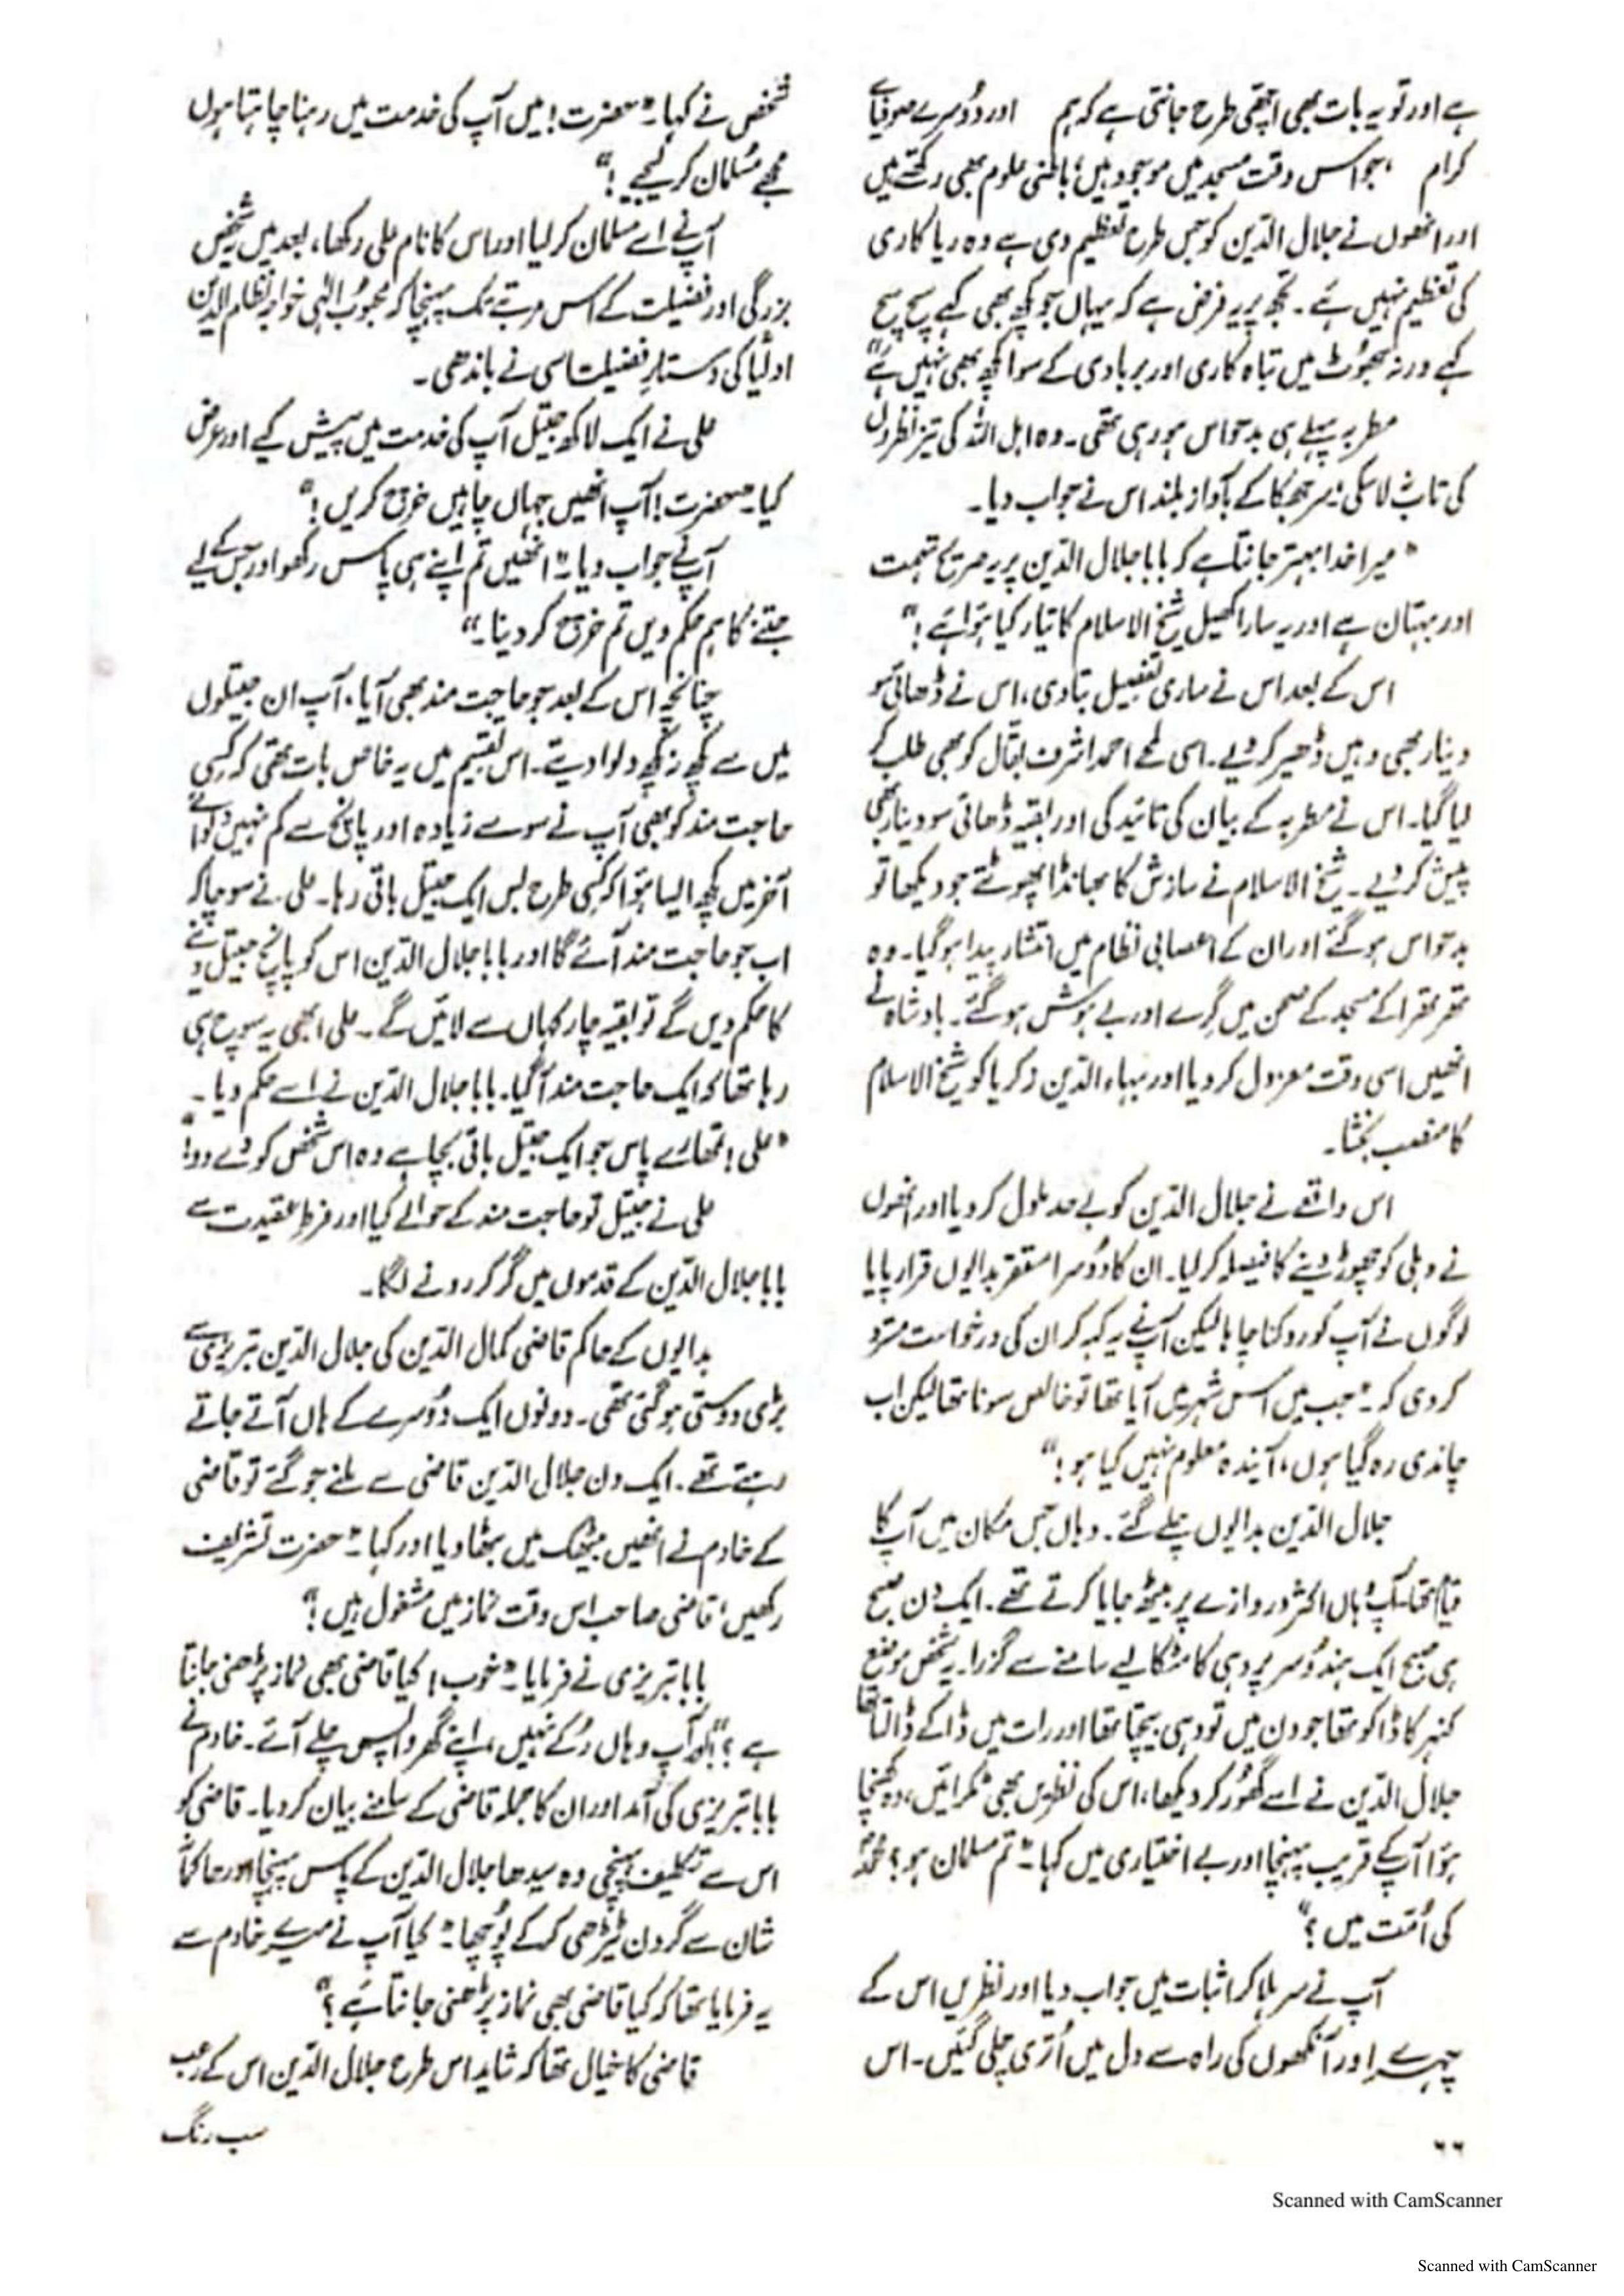 ہے اور تو یہ بات بھی اچھی طرح جانتی ہے کہ ہم اور دوسرے صوفیائے
کرام ، جو اس وقت مسجد میں موجود ہیں، باطنی علوم بھی رکھتے ہیں
اور انھوں نے جلال الدین کو جس طرح تعظیم دی ہے وہ ریاکاری
کی تعظیم نہیں ہے۔ تجھ پر یہ فرض ہے کہ یہاں جو کچھ بھی کہے سچ سچ
کہے ورنہ جھوٹ میں تباہ کاری اور بربادی کے سوا کچھ بھی نہیں ہے"
مطربہ پہلے ہی بدحواس ہو رہی تھی۔ وہ اہل اللہ کی تیز نظروں
کی تاب نہ لا سکی۔ سر جھکا کے بآواز بلند اس نے جواب دیا۔
"میرا خدا بہتر جانتا ہے کہ بابا جلال الدین پر یہ صریح تہمت
اور بہتان ہے اور یہ سارا کھیل شیخ الاسلام کا تیار کیا ہوا ہے!"
اس کے بعد اس نے ساری تفصیل بتا دی، اس نے ڈھائی سو
دینار بھی وہیں ڈھیر کر دیے۔ اسی لمحے احمد اشرف بقال کو بھی طلب کر
لیا گیا۔ اس نے مطربہ کے بیان کی تائید کی اور بقیہ ڈھائی سو دینار بھی
پیش کر دیے۔ شیخ الاسلام نے سازش کا بھانڈا پھوٹتے جو دیکھا تو
بدحواس ہو گئے اور ان کے اعصابی نظام میں انتشار پیدا ہو گیا۔ وہ
تھر تھرا کے مسجد کے صحن میں گرے اور بے ہوش ہو گئے۔ بادشاہ نے
انھیں اسی وقت معزول کر دیا اور بہاء الدین زکریا کو شیخ الاسلام
کا منصب بخشا۔
اس واقعے نے جلال الدین کو بے حد ملول کر دیا اور انھوں
نے دہلی کو چھوڑ دینے کا فیصلہ کر لیا۔ ان کا دوسرا مستقر بدایوں قرار پایا
لوگوں نے آپ کو روکنا چاہا لیکن آپ نے یہ کہہ کر ان کی درخواست مسترد
کر دی کہ۔ "جب میں اس شہر میں آیا تھا تو خالص سونا تھا لیکن اب
چاندی رہ گیا ہوں، آیندہ معلوم نہیں کیا ہو!"
جلال الدین بدایوں چلے گئے۔ وہاں جس مکان میں آپ کا
قیام تھا، آپ وہاں اکثر دروازے پر بیٹھ جایا کرتے تھے۔ ایک دن صبح
ہی صبح ایک ہندو سر پر دہی کا مٹکا لیے سامنے سے گزرا۔ یہ شخص موضع
کنہر کا ڈاکو تھا جو دن میں تو دہی بیچتا تھا اور رات میں ڈاکے ڈالتا تھا
جلال الدین نے اسے گھور کر دیکھا، اس کی نظریں بھی ٹکرائیں، وہ کھنچا
ہوا آپ کے قریب پہنچا اور بے اختیاری میں کہا۔ "تم مسلمان ہو؟ محمدؐ
کی اُمت میں؟"
آپ نے سر ہلا کر اثبات میں جواب دیا اور نظریں اس کے
چہرے اور آنکھوں کی راہ سے دل میں اُترتی چلی گئیں۔ اس
۶۶
شخص نے کہا۔ "حضرت! میں آپ کی خدمت میں رہنا چاہتا ہوں
مجھے مُسلمان کر لیجیے!"
آپ نے اسے مسلمان کر لیا اور اس کا نام علی رکھا، بعد میں یہ شخص
بزرگی اور فضیلت کے اس مرتبے تک پہنچا کہ محبوبِ الٰہی خواجہ نظام الدین
اولیاؒ کی دستارِ فضیلت اسی نے باندھی۔
علی نے ایک لاکھ جیتل آپ کی خدمت میں پیش کیے اور عرض
کیا۔ "حضرت! آپ انھیں جہاں چاہیں خرچ کریں!"
آپ نے جواب دیا۔ "انھیں تم اپنے ہی پاس رکھو اور جس کے لیے
جتنے کا ہم حکم دیں تم خرچ کر دینا۔"
چنانچہ اس کے بعد جو حاجت مند بھی آیا، آپ ان جیتلوں
میں سے کچھ نہ کچھ دلوا دیتے۔ اس تقسیم میں یہ خاص بات تھی کہ کسی
حاجت مند کو بھی آپ نے سو سے زیادہ اور پانچ سے کم نہیں دلوائے
آخر میں کچھ ایسا ہوا کہ کسی طرح بس ایک جیتل باقی رہا۔ علی نے سوچا کہ
اب جو حاجت مند آئے گا اور بابا جلال الدین اس کو پانچ جیتل دینے
کا حکم دیں گے تو بقیہ چار کہاں سے لائیں گے۔ علی ابھی یہ سوچ ہی
رہا تھا کہ ایک حاجت مند آ گیا۔ بابا جلال الدین نے اسے حکم دیا۔
"علی! تمھارے پاس جو ایک جیتل باقی بچا ہے وہ اس شخص کو دے دو!"
علی نے جیتل تو حاجت مند کے حوالے کیا اور فرطِ عقیدت سے
بابا جلال الدین کے قدموں میں گر کر رونے لگا۔
بدایوں کے حاکم قاضی کمال الدین کی جلال الدین تبریزی سے
بڑی دوستی ہو گئی تھی۔ دونوں ایک دُوسرے کے ہاں آتے جاتے
رہتے تھے۔ ایک دن جلال الدین قاضی سے ملنے جو گئے تو قاضی
کے خادم نے انھیں بیٹھک میں بٹھا دیا اور کہا۔ "حضرت تشریف
رکھیں، قاضی صاحب اس وقت نماز میں مشغول ہیں!"
بابا تبریزی نے فرمایا۔ "خوب! کیا قاضی بھی نماز پڑھنی جانتا
ہے؟" پھر آپ وہاں رُکے نہیں، اپنے گھر واپس چلے آئے۔ خادم نے
بابا تبریزی کی آمد اور ان کا جملہ قاضی کے سامنے بیان کر دیا۔ قاضی کو
اس سے تکلیف پہنچی وہ سیدھا جلال الدین کے پاس پہنچا اور حاکمانہ
شان سے گردن ٹیڑھی کر کے پُوچھا۔ "کیا آپ نے میرے خادم سے
یہ فرمایا تھا کہ کیا قاضی بھی نماز پڑھنی جانتا ہے؟"
قاضی کا خیال تھا کہ شاید اس طرح جلال الدین اس کے رعب
سب رنگ
Scanned with CamScanner
Scanned with CamScanner